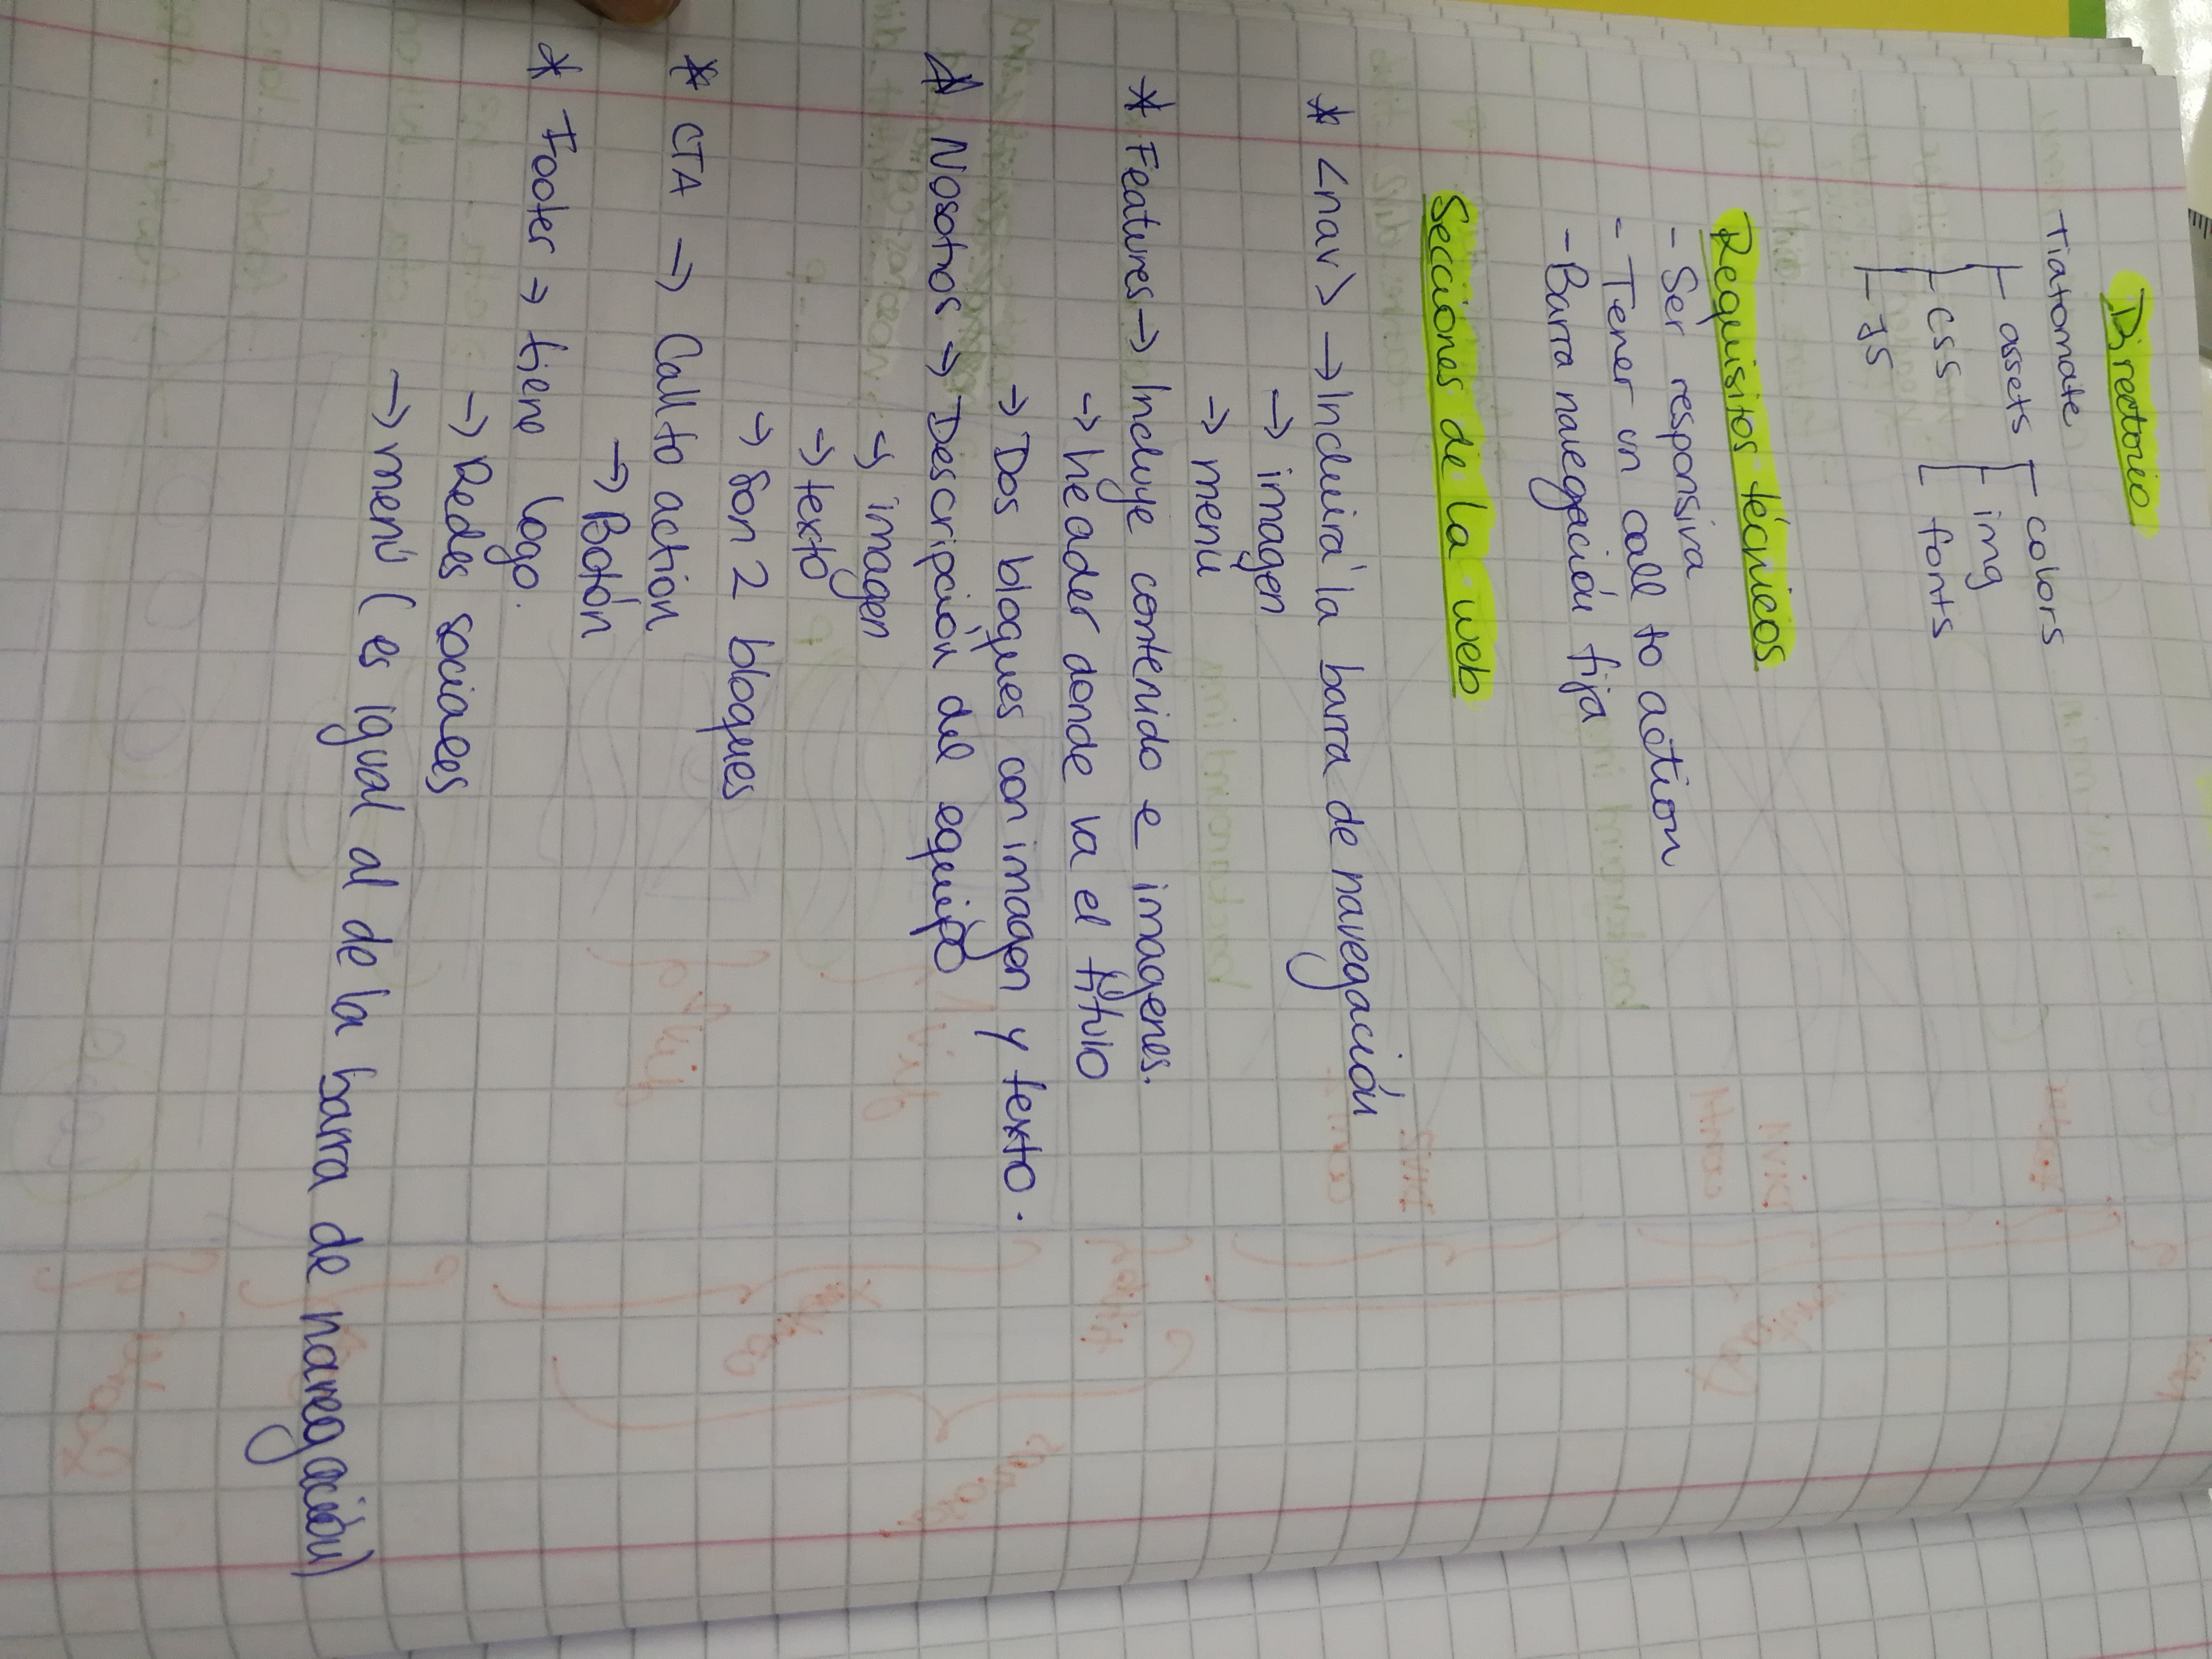 Directorio
Tiatomate
assets
colors
img
fonts
css
JS
Requisitos técnicos
- Ser responsiva
- Tener un call to action
- Barra navegación fija
Secciones de la web
* <nav> → Incluira la barra de navegación
→ imagen
→ menu
* Features → Incluye contenido e imagenes.
→ header donde va el título
→ Dos bloques con imagen y texto.
* Nosotros → Descripción del equipo
→ imagen
→ texto
→ Son 2 bloques
* CTA → Call to action
→ Botón
* Footer → tiene logo.
→ Redes sociales
→ menú (es igual al de la barra de navegación)